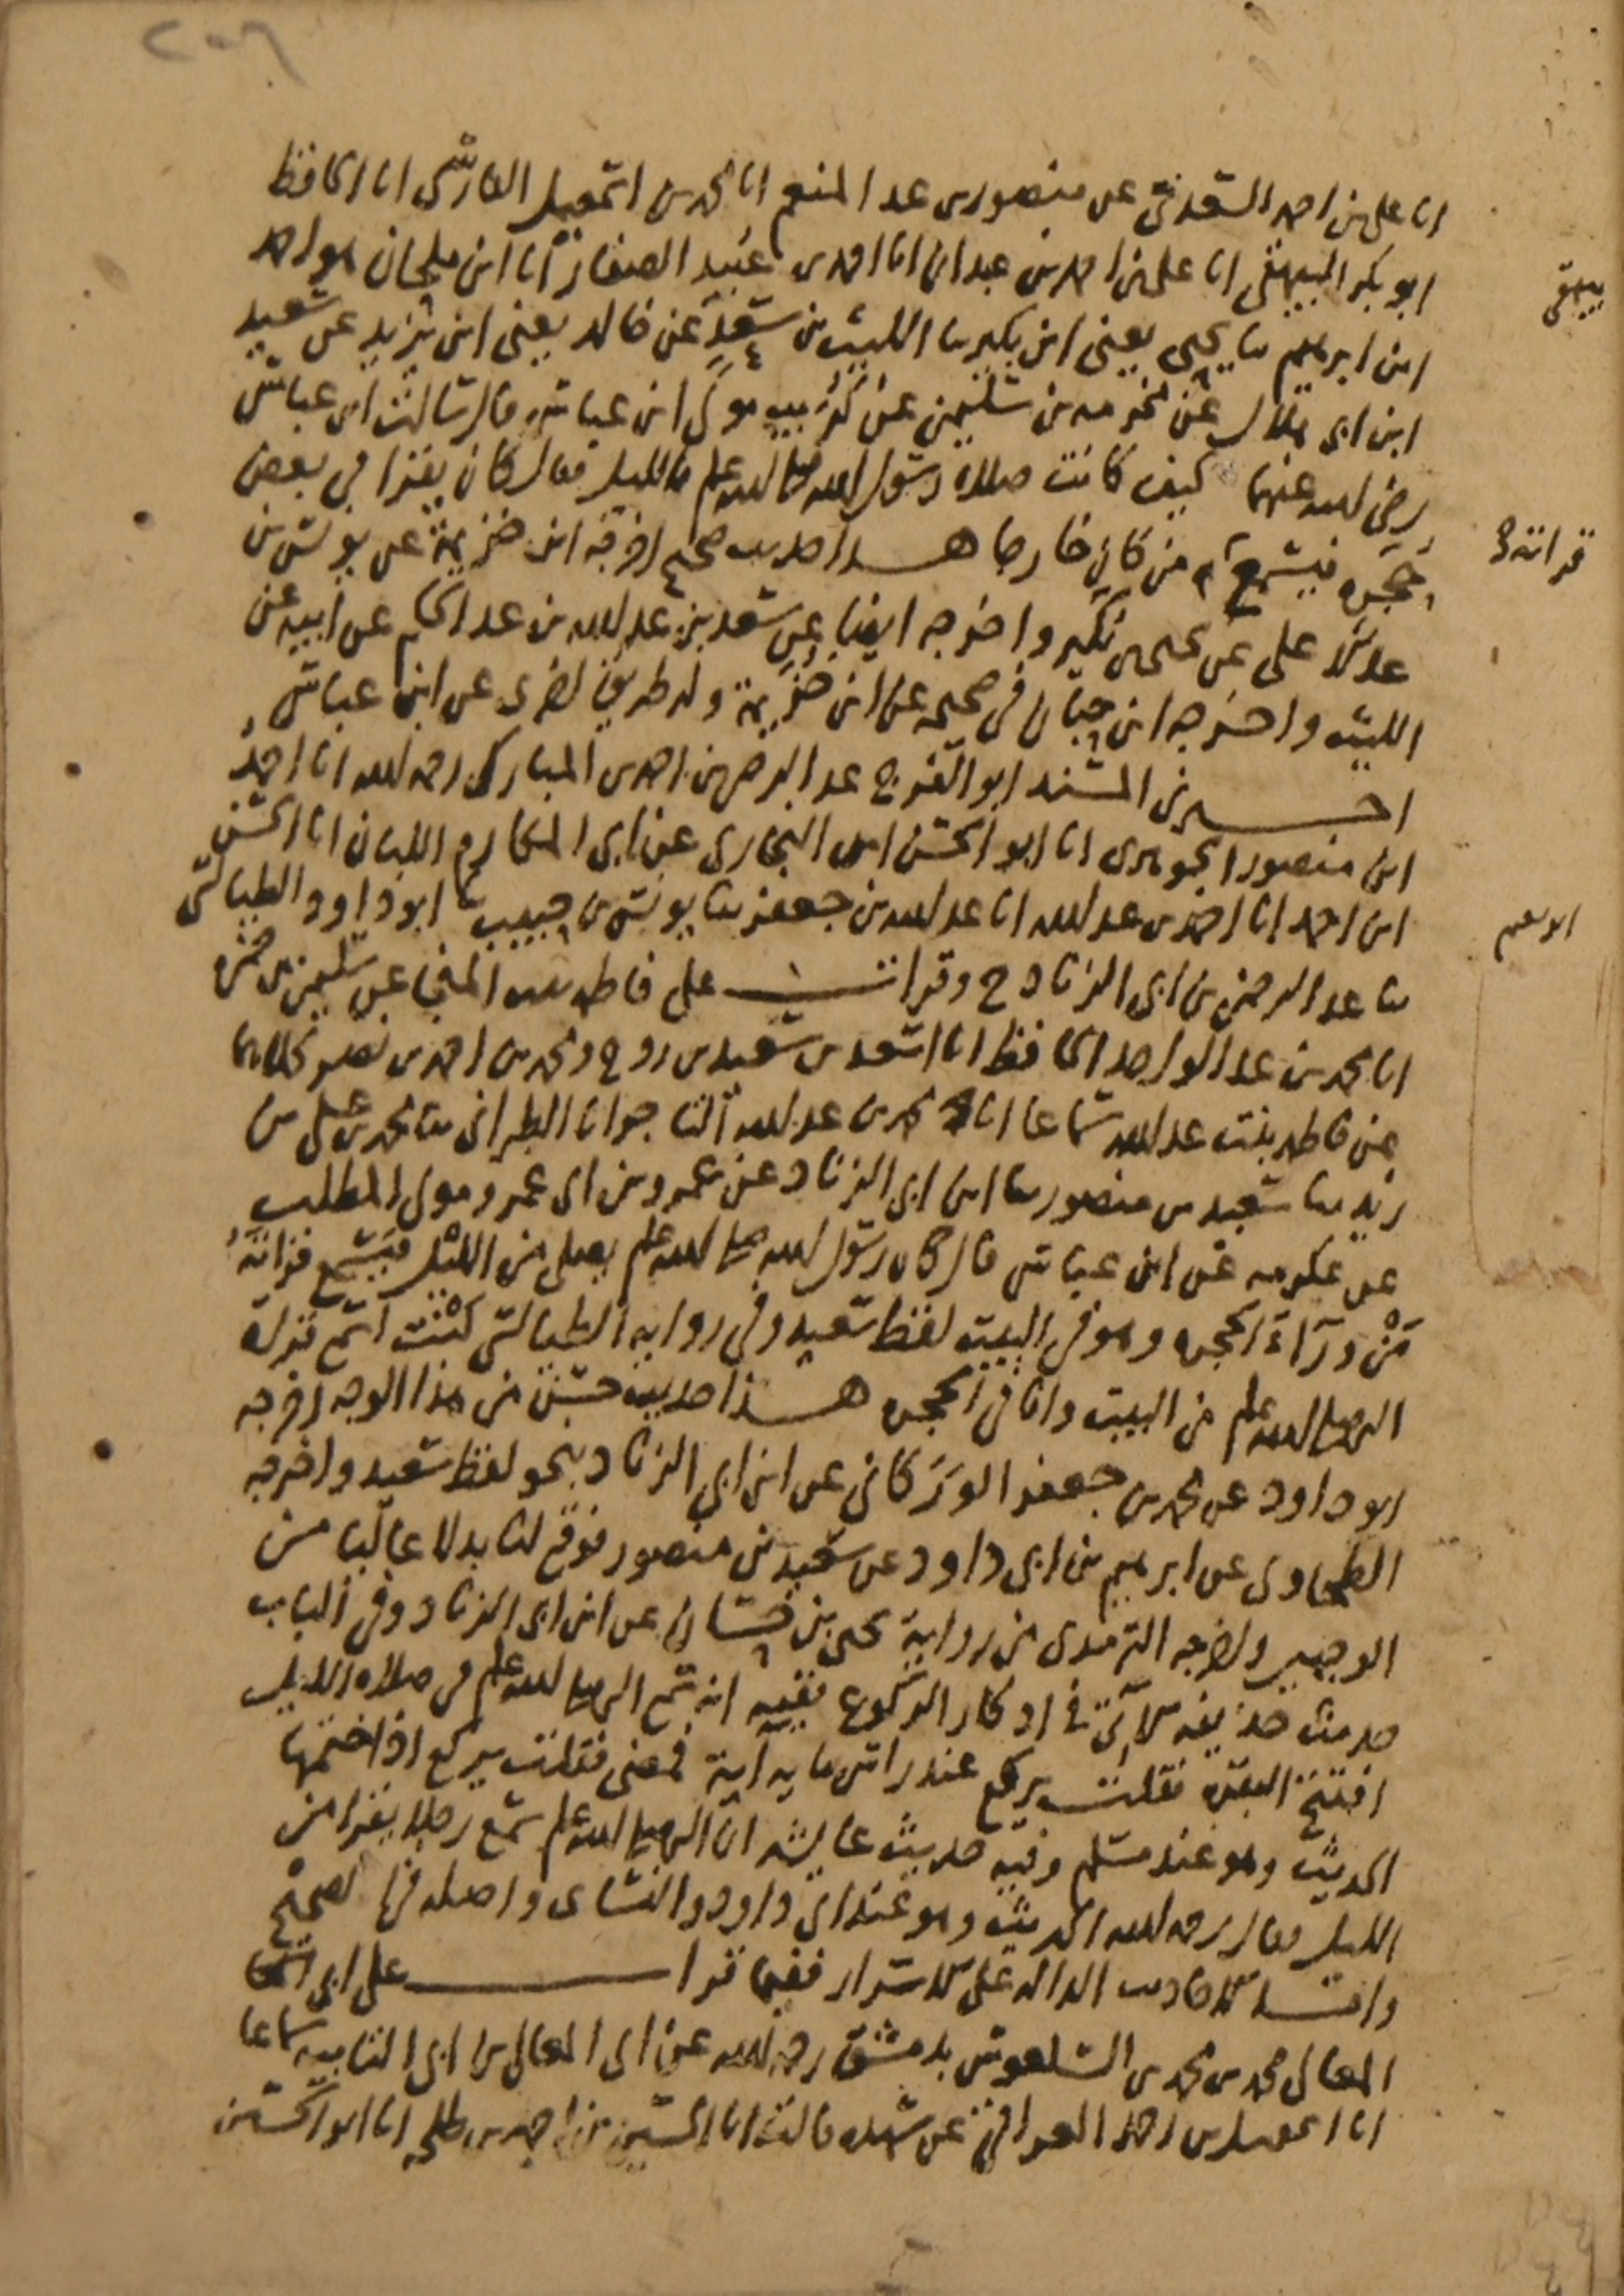 ٢٠٦
انا على بن احمد السعدى عن منصور بن عبد المنعم انا محمد بن اسمعيل الفارسى انا الحافظ
ابو بكر البيهقى انا على بن احمد بن عبدان انا احمد بن عبيد الصفار انا ابن ملحان هو احمد
بيهقى
ابن ابرهيم نا يحيى يعنى ابن بكير نا الليث بن سعد عن خالد يعنى ابن يزيد عن سعيد
ابن ابى هلال عن مخرمه بن سليمن عن كريب مولى ابن عباس قال سالت ابن عباس
رضى الله عنهما كيف كانت صلاه رسول الله صلى الله عليه وسلم بالليل فقال كان يقرا فى بعض
حجره فيسمع من كان خارجا هـذا حديث صحيح اخرجه ابن خزيمة عن يونس بن
قراته
عبد الاعلى عن يحيى بن بكير واخرجه ايضا عن سعد بن عبد الله بن عبد الحكم عن ابيه عن
الليث واخرجه ابن حبان فى صحيحه عن ابن خزيمة وله طريق اخرى عن ابن عباس
اخـبرنى المسند ابو الفرج عبد الرحمن بن احمد بن المبارك رحمه الله انا احمد
ابن منصور الجوهرى انا ابو الحسن ابن البخارى عن ابى المكارم اللبان انا الحسن
ابن احمد انا احمد بن عبد الله انا عبد الله بن جعفر نا يونس بن حبيب نا ابو داود الطيالسى
ابو نعيم
نا عبد الرحمن بن ابى الزناد ح وقرات على فاطمه بنت المنجا عن سليمن بن حمزه
انا محمد بن عبد الواحد الحافظ انا اسعد بن سعيد بن روح ومحمد بن احمد بن نصر كلاهما
عن فاطمه بنت عبد الله سماعا انا محمد بن عبد الله التاجر انا الطبرانى نا محمد بن على بن
زيد نا سعيد بن منصور نا ابن ابى الزناد عن عمرو بن ابى عمرو مولى المطلب
عن عكرمه عن ابن عباس قال كان رسول الله صلى الله عليه وسلم يصلى من الليل فيسمع قراته
من ورآء الحجره وهو فى البيت لفظ سعيد وفى روايه الطيالسى كنت اسمع قراة
النبى صلى الله عليه وسلم من البيت وانا فى الحجره هـذا حديث حسن من هذا الوجه اخرجه
ابو داود عن محمد بن جعفر الوركانى عن ابن ابى الزناد بنحو لفظ سعيد واخرجه
الطحاوى عن ابرهيم بن ابى داود عن سعيد بن منصور فوقع لنا بدلا عاليا من
الوجهين واخرجه الترمذى من رواية يحيى بن حسان عن ابن ابى الزناد وفى الباب
حديث حذيفه الآتى فى اذكار الركوع ففيه انه سمع النبى صلى الله عليه وسلم فى صلاه الليل
افتتح البقره فقلت يركع عند راس مايه آية فمضى فقلت يركع اذا ختمها
الحديث وهو عند مسلم وفيه حديث عايشه ان النبى صلى الله عليه وسلم سمع رجلا يقرا من
الليل فقال رحمه الله الحديث وهو عند ابى داود والنساى واصله فى الصحيح
وامـا الاحاديث الداله على الاسرار ففيما قرات على ابى
المعالى محمد بن محمد بن السلعوس بدمشق رحمه الله عن ابى المعالى بن ابى التايب سماعا
انا اسمعيل بن احمد العراقى عن شهده قالت انا الحسين بن احمد بن طلحه انا ابو الحسين